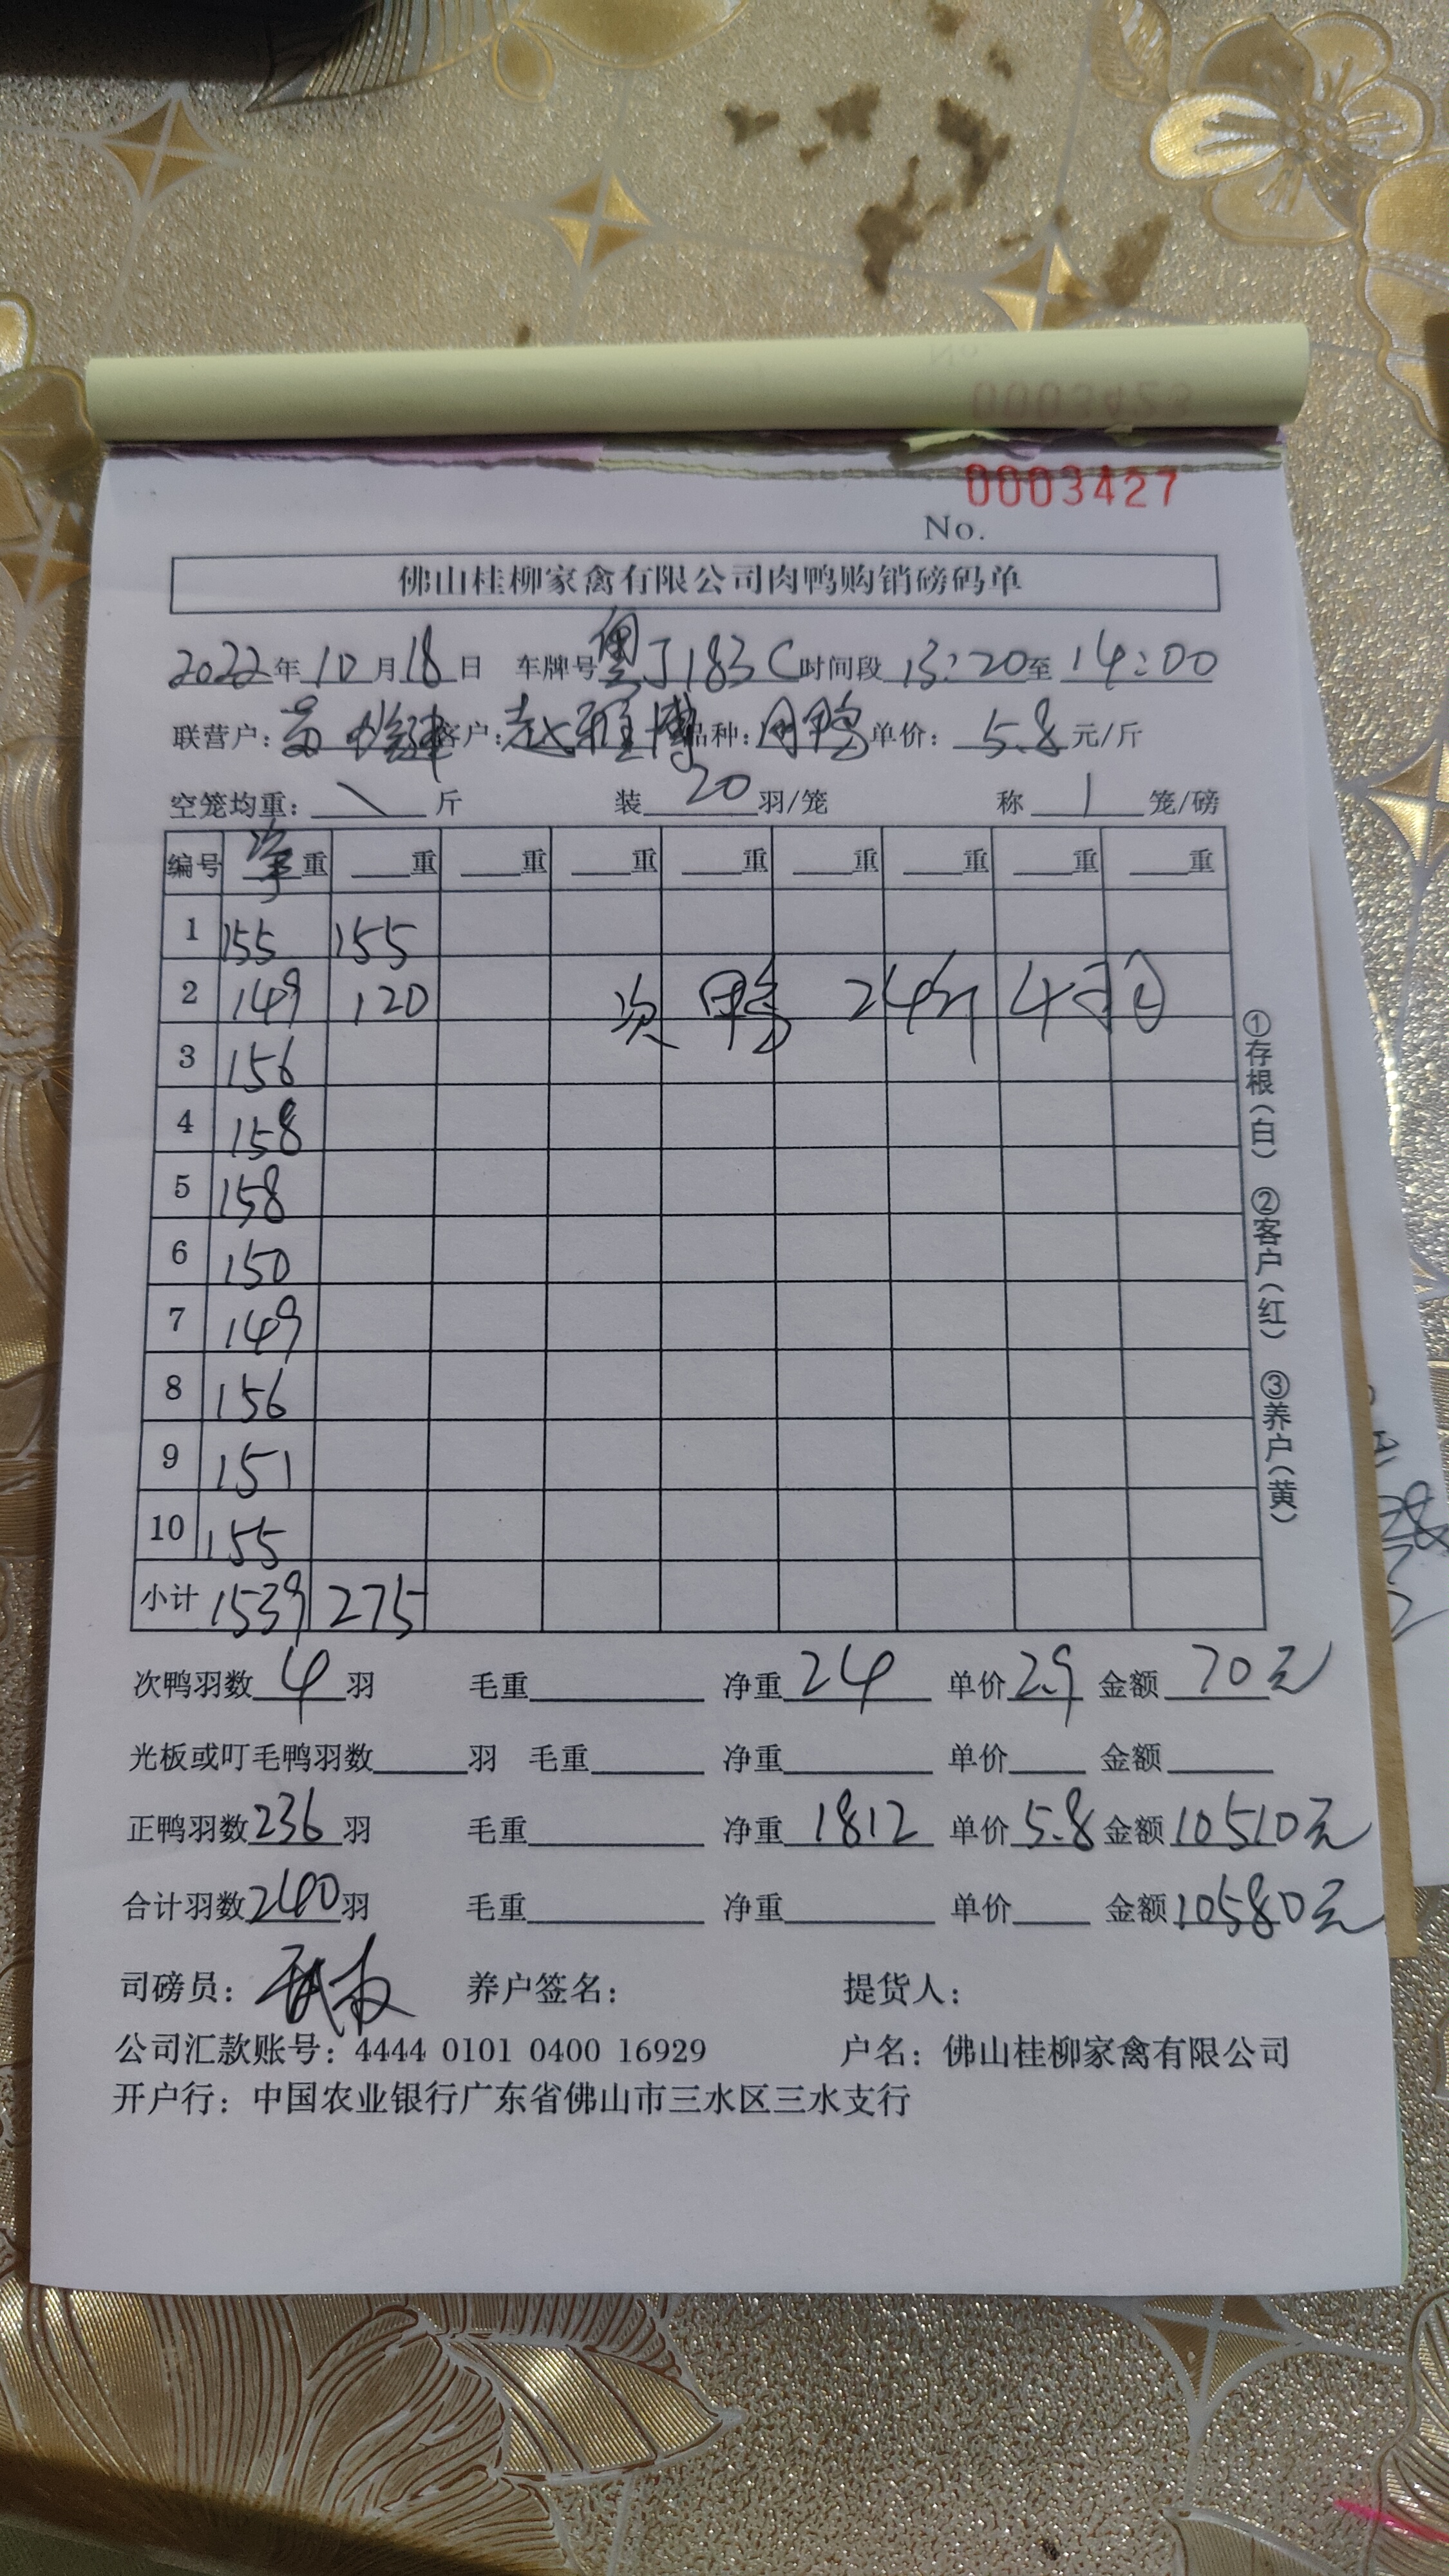 0003423
0003427
No.
佛山桂柳家禽有限公司肉鸭购销磅码单
2022年10月18日 车牌号粤J183C时间段13:20至14:00
联营户: 客户: 赵雅博 品种: 肉鸭 单价: 5.8元/斤
空笼均重: \ 斤 装20羽/笼 称1笼/磅
编号 净重 重 重 重 重 重 重 重 重
1 155 155
2 149 120 次鸭 24斤 4只
3 156
4 158
5 158
6 150
7 149
8 156
9 151
10 155
小计 1539 275
①存根(白) ②客户(红) ③养户(黄)
次鸭羽数4羽 毛重 净重24 单价2.9 金额70元
光板或叮毛鸭羽数 羽 毛重 净重 单价 金额
正鸭羽数236羽 毛重 净重1812 单价5.8 金额10510元
合计羽数240羽 毛重 净重 单价 金额10580元
司磅员: 养户签名: 提货人:
公司汇款账号: 4444 0101 0400 16929 户名: 佛山桂柳家禽有限公司
开户行: 中国农业银行广东省佛山市三水区三水支行